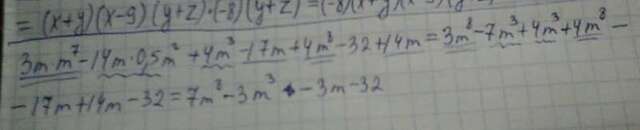 = (x+y)(x-9)(y+z)·(-8)(y+z) = (-8)(x+y)(x
3m·m⁷-14m·0,5m²+4m³-17m+4m⁸-32+14m = 3m⁸-7m³+4m³+4m⁸-
-17m+14m-32 = 7m⁸-3m³-3m-32